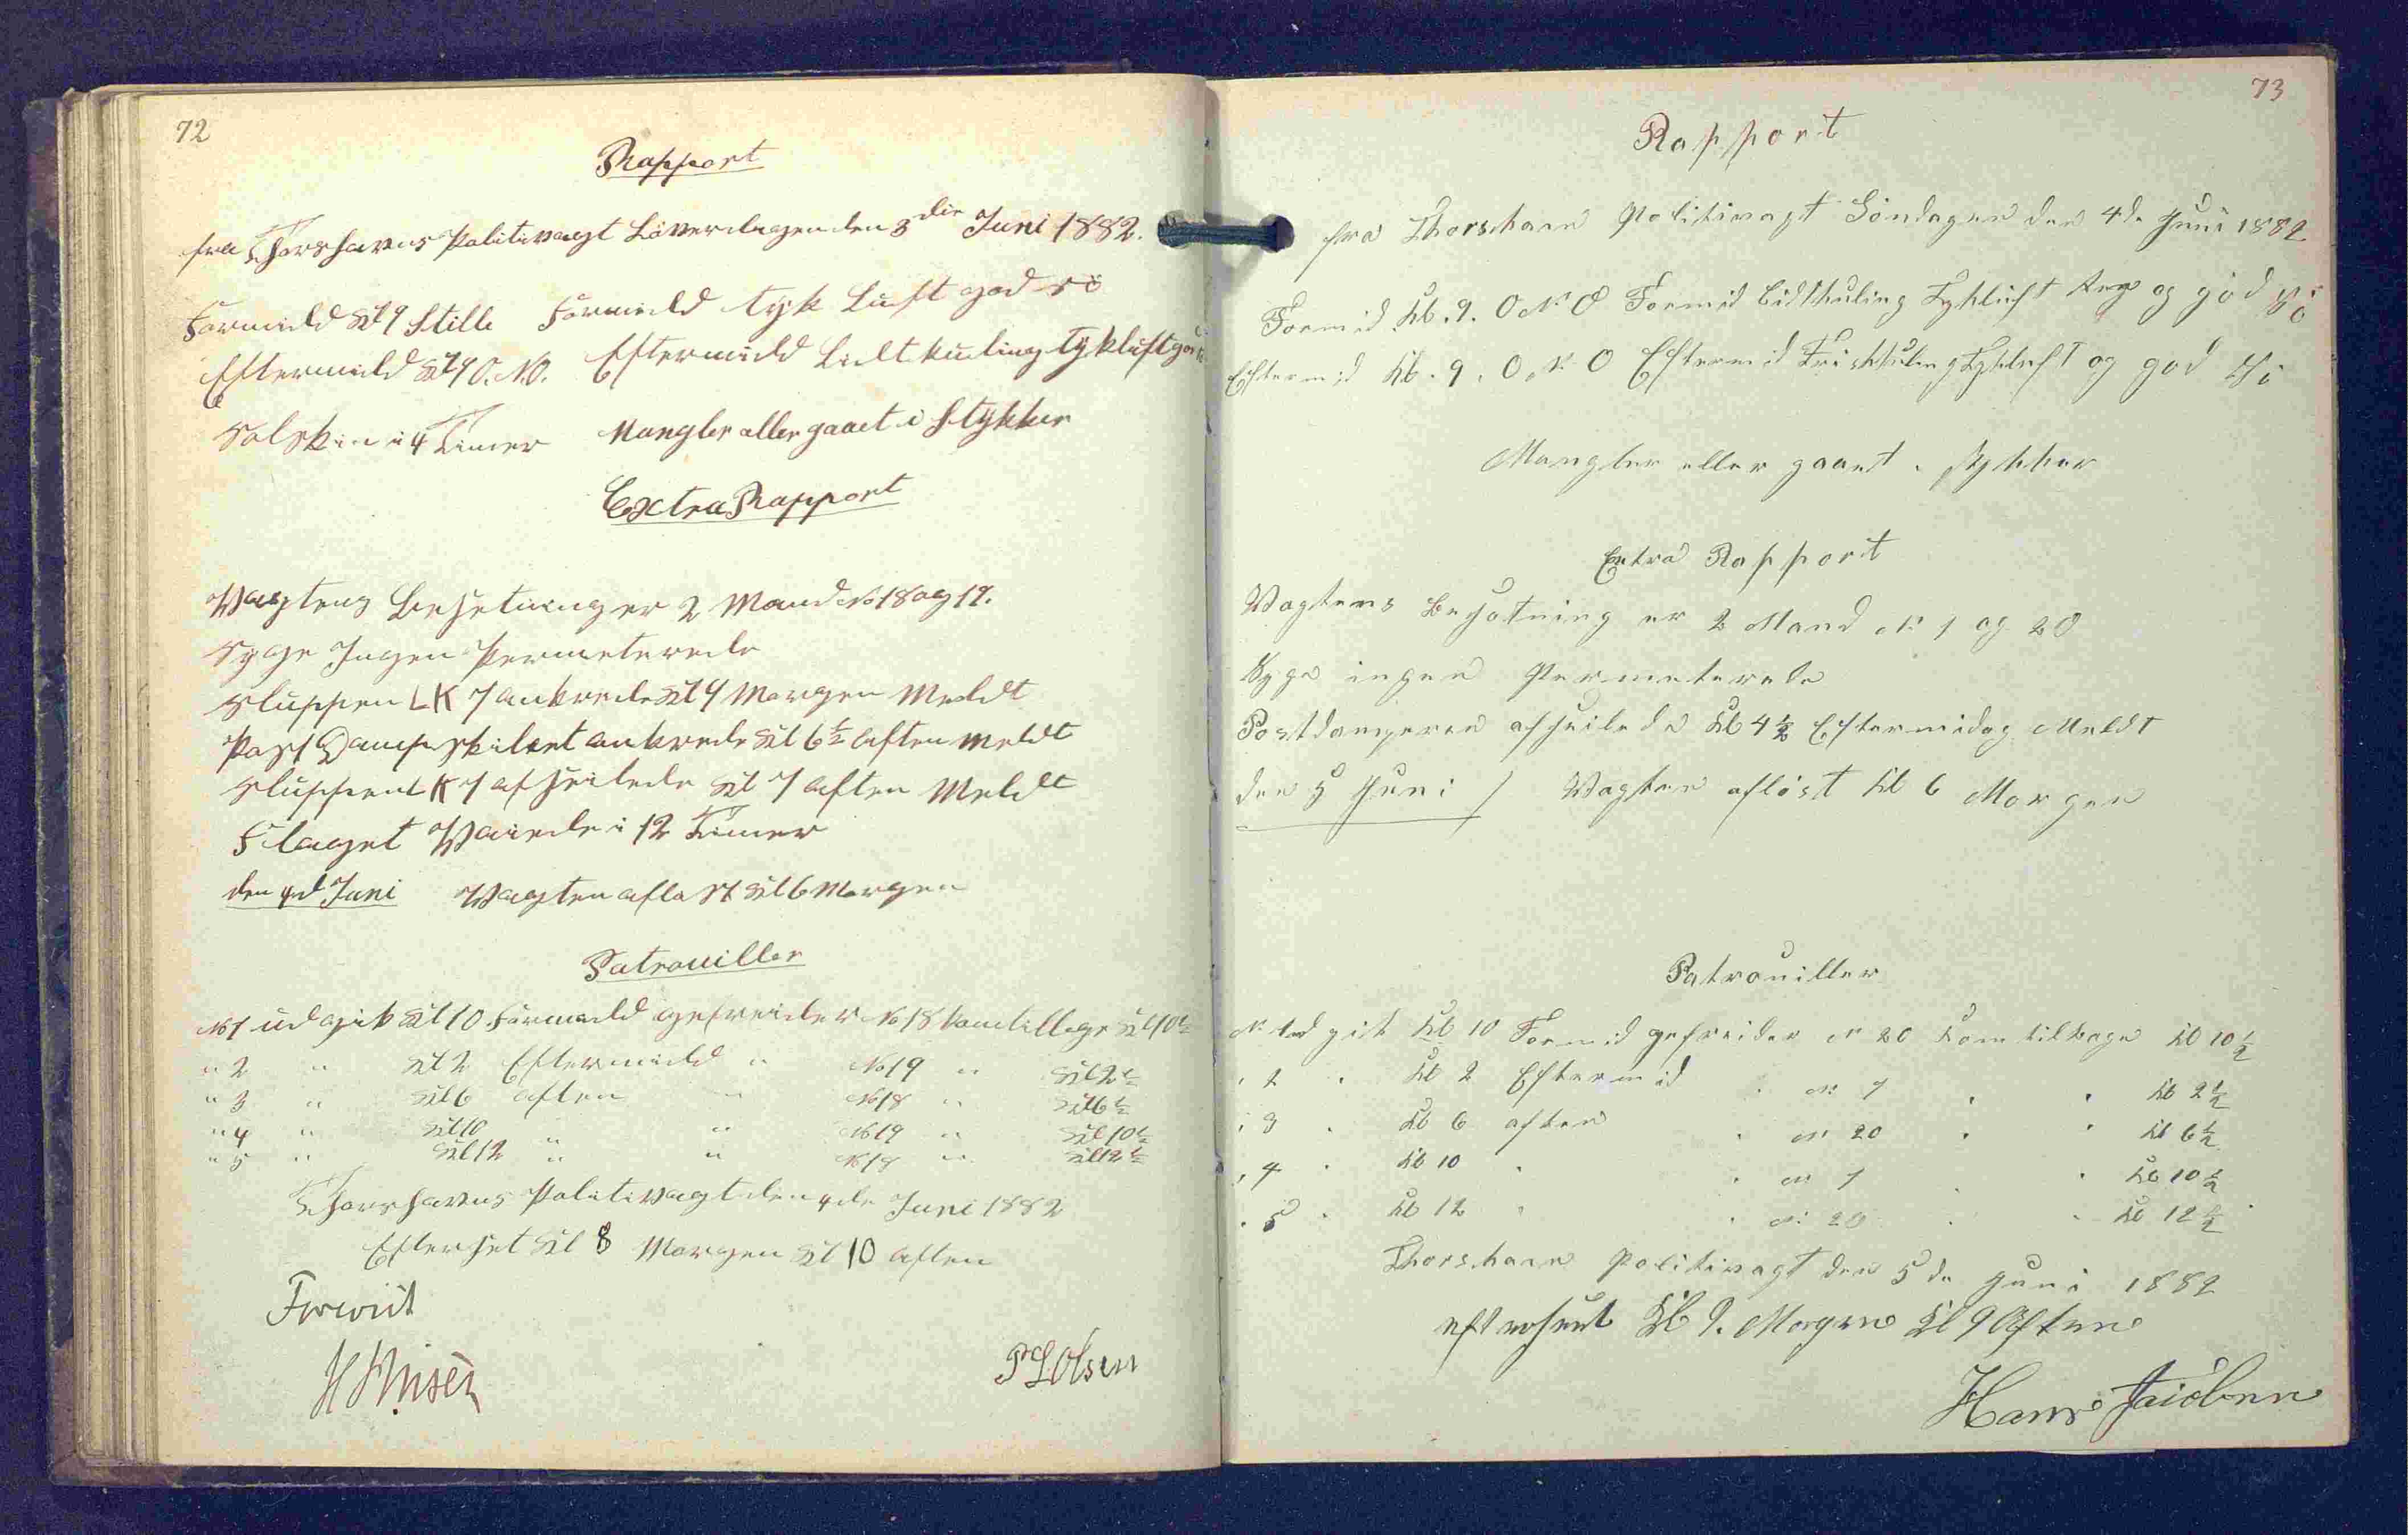 72
Rapport
fra Thorshavns Politivagt Löverdagen den 3die Juni 1882.
Formidd Kl 9 Stille Formidd tyk Luft god Sö
Eftermidd Kl 9 O.N.O. Eftermidd Lidt kuling tykluft god
Solskin i 4 Timer Mangler eller gaaet i Stykker
Extra Rapport
Vagtens Besetning er 2 Mand No 18 og 19.
Syge Ingen Permeterede
Sluppen LK 7 ankrede Kl 4 Morgen Meldt
Post Dampskibet ankrede Kl 6½ Aften Meldt
Sluppen LK 7 afseilede Kl 7 Aften Meldt
Flaget Vaiede i 12 Timer
den 4d Juni Vagten aflöst Kl 6 Morgen
Patrouiller
No 1 udgik Kl 10 Formidd gefreider No 18 kom tillage Kl 10½
" 2 " Kl 2 Eftermidd " No 19 " Kl 2½
" 3 " Kl 6 Aften " No 18 " Kl 6½
" 4 " Kl 10 " " No 19 " Kl 10½
" 5 " Kl 12 " " No 18 " Kl 12½
Thorshavns Politivagt den 4de Juni 1882
Efterset Kl 8 Morgen Kl 10 Aften
Forevist
P L Olsen
73
Rapport
fra Thorshavn Politivagt Söndagen den 4de Juni 1882
Formid Kl. 9. O N O Formid Lidtkuling Tykluft Reg og god Sö
Eftermid Kl. 9. O N O Eftermid Friskkuling Tykluft og god Sö
Mangler eller gaaet i stykker
Extra Rapport
Vagtens Besætning er 2 Mand No 1 og 20
Syge ingen Permeterede
Postdamperen afseilede Kl 4½ Eftermidag Meldt
den 5 Juni / Vagten aflöst Kl 6 Morgen
Patrouiller
No 1 ud gik Kl 10 Formid gefreider No 20 kom tilbage Kl 10½
" 2 " Kl 2 Eftermid " No 1 " " Kl 2½
" 3 " Kl 6 aften " No 20 " " Kl 6½
" 4 " Kl 10 " " No 1 " Kl 10½
" 5 " Kl 12 " " No 20 " " Kl 12½
Thorshavn Politivagt den 5de Juni 1882
efterseet Kl 9. Morgen Kl 9 Aften
Hans Jacobsen